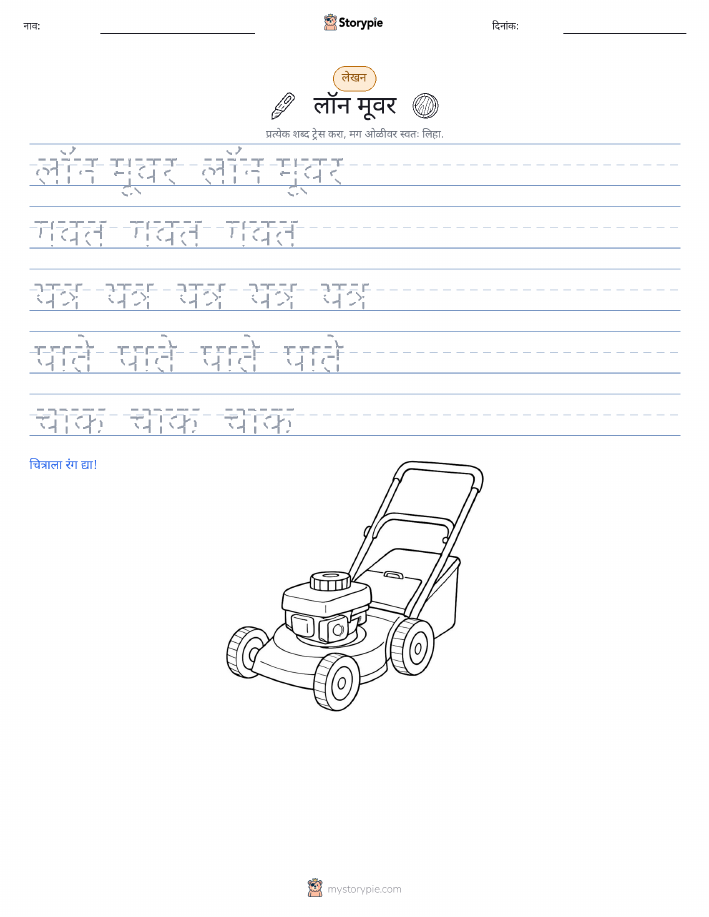 नाव:
Storypie
दिनांक:
लेखन
लॉन मूवर
प्रत्येक शब्द ट्रेस करा, मग ओळीवर स्वतः लिहा.
लॉन मूवर लॉन मूवर
गवत गवत गवत
यंत्र यंत्र यंत्र यंत्र यंत्र
पाते पाते पाते पाते
चाक चाक चाक
चित्राला रंग द्या!
mystorypie.com